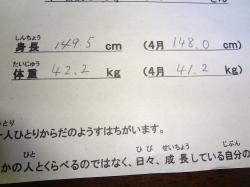 しんちょう
身長 149.5 cm (4月 148.0 cm)
たいじゅう
体重 42.2 kg (4月 41.2 kg)
とり
一人ひとりからだのようすはちがいます。
ひと ひび せいちょう じぶん
かの人とくらべるのではなく、日々、成長している自分の